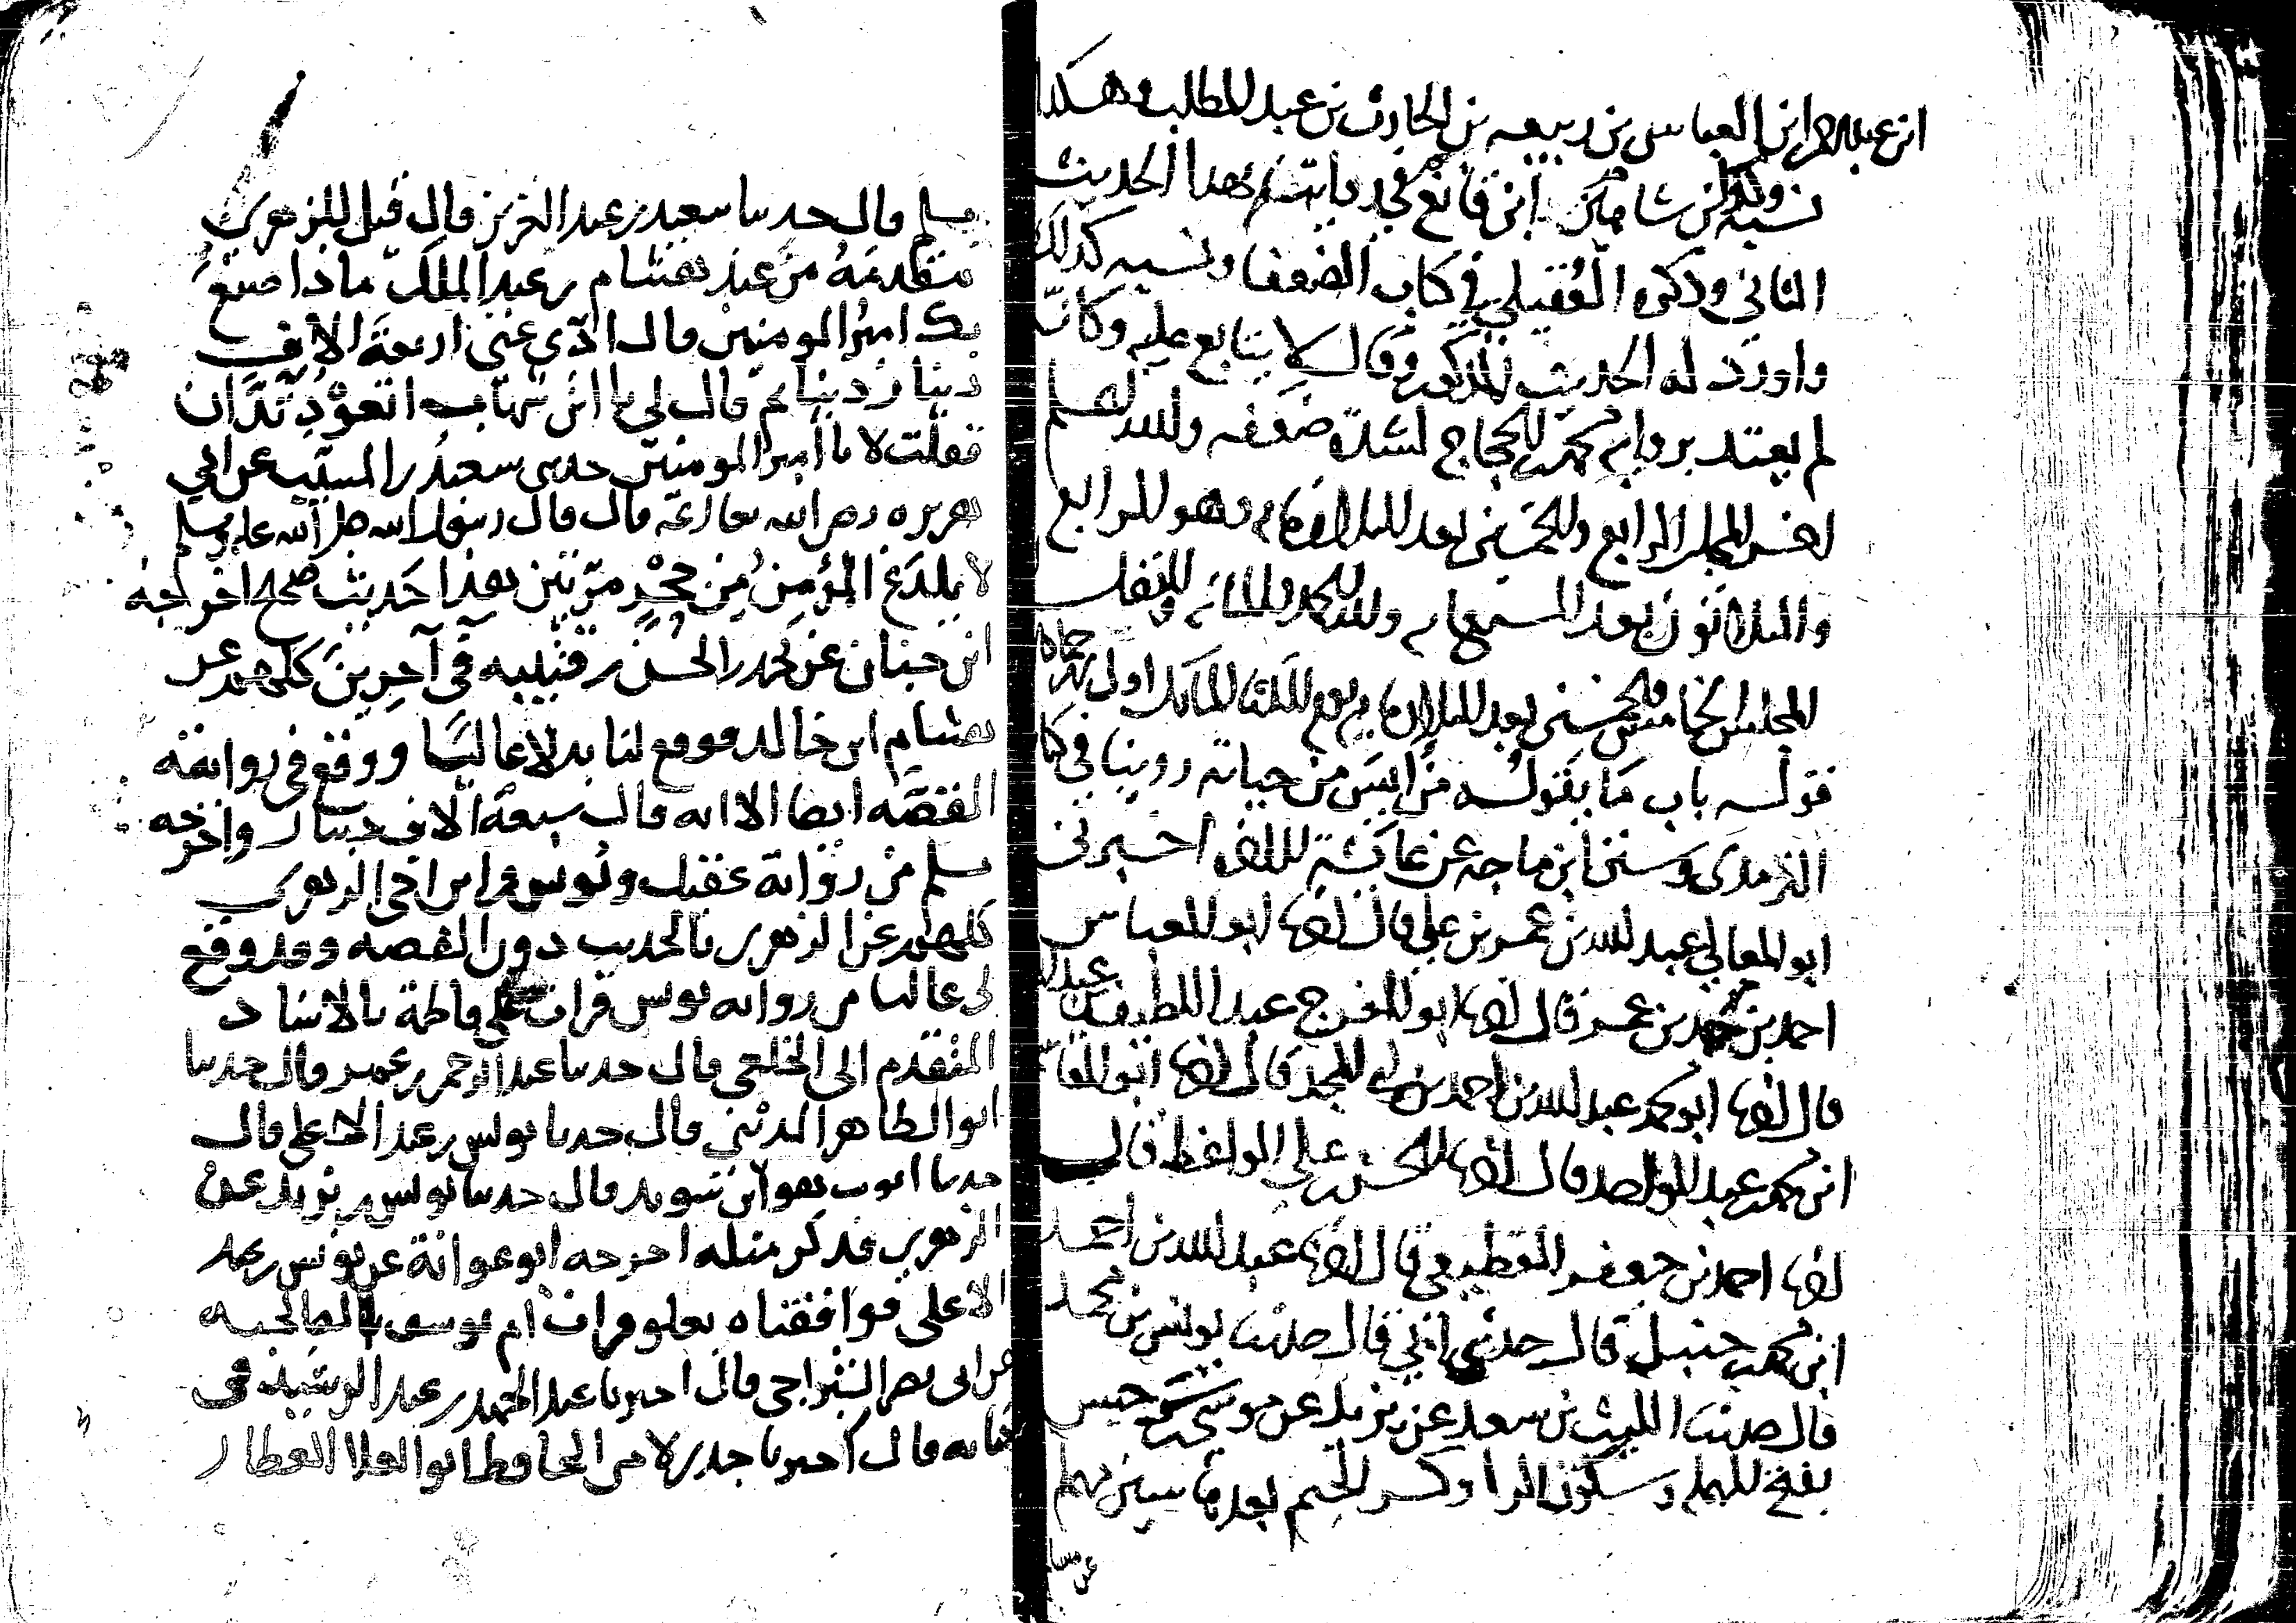 ابن عبد الله ابن العباس بن ربيعه بن الحارث بن عبد المطلب وهكذا
نسبه ابن شاهين وكذا ابن قانع في رواية هذا الحديث
الثاني وذكره العقيلي في كتاب الضعفا ونسبه كذلك
واورد له الحديث المذكور وقال لا يتابع عليه وكانه
لم يعتد برواية محمد بن الحجاج لشدة ضعفه والله اعلم
اخر المجلس الرابع والخمسين بعد الثلاثمايه وهو الرابع
والثلاثون بعد السبعمايه
المجلس الخامس والخمسين بعد الثلاثمايه
قوله باب ما يقوله من ايس من حياته روينا في كتاب
الترمذي وسنن ابن ماجه عن عائشة اخبرني
ابو المعالي عبد الله بن عمر بن علي قال انا ابو العباس
احمد بن محمد بن عمر قال انا ابو الفرج عبد اللطيف بن عبد
قال انا ابو محمد عبد الله بن احمد بن ابي المجد قال انا ابو القاسم
ابن محمد بن عبد الواحد قال انا الحسن بن علي الواعظ قال
انا احمد بن جعفر القطيعي قال انا عبد الله بن احمد
ابن محمد بن حنبل قال حدثني ابي قال حدثنا يونس بن محمد
قال حدثنا الليث بن سعد عن يزيد عن موسى بن سرجس
بفتح المهملة وسكون الرا وكسر الجيم بعدها سين مهملة
مسلم قال حدثنا سعيد بن عبد العزيز قال قيل للزهري
مقدمه من عند هشام بن عبد الملك ماذا صنع
بك امير المومنين قال ادى عني اربعة الاف
دينار دينا ثم قال لي يا ابن شهاب اتعود تدان
فقلت لا يا امير المومنين حدثني سعيد بن المسيب عن ابي
هريره رضي الله تعالى عنه قال قال رسول الله صلى الله عليه وسلم
لا يلدغ المؤمن من جحر مرتين هذا حديث صحيح اخرجه
ابن حبان عن محمد بن الحسن بن قتيبه في آخرين كلهم عن
هشام ابن خالد فوقع لنا بدلا عاليا ووقع في روايته
القصه ايضا الا انه قال سبعة الاف دينار واخرجه
مسلم من رواية عقيل ويونس وابن اخي الزهري
كلهم عن الزهري بالحديث دون القصه وقد وقع
لي عاليا من روايه يونس قرات على فاطمة بالاسناد
المتقدم الى الخلعي قال حدثنا عبد الرحمن بن عمر قال حدثنا
ابو الطاهر المديني قال حدثنا يونس بن عبد الاعلى قال
حدثنا ايوب هو ابن سويد قال حدثنا يونس بن يزيد عن
الزهري فذكر مثله اخرجه ابو عوانة عن يونس بن عبد
الاعلى فوافقناه بعلو وقرات على ام يوسف الصالحيه
عن ابي نصر الشيرازي قال اخبرنا عبد الحميد بن عبد الرشيد في
كتابه قال اخبرنا جدي لامي الحافظ ابو العلا العطار